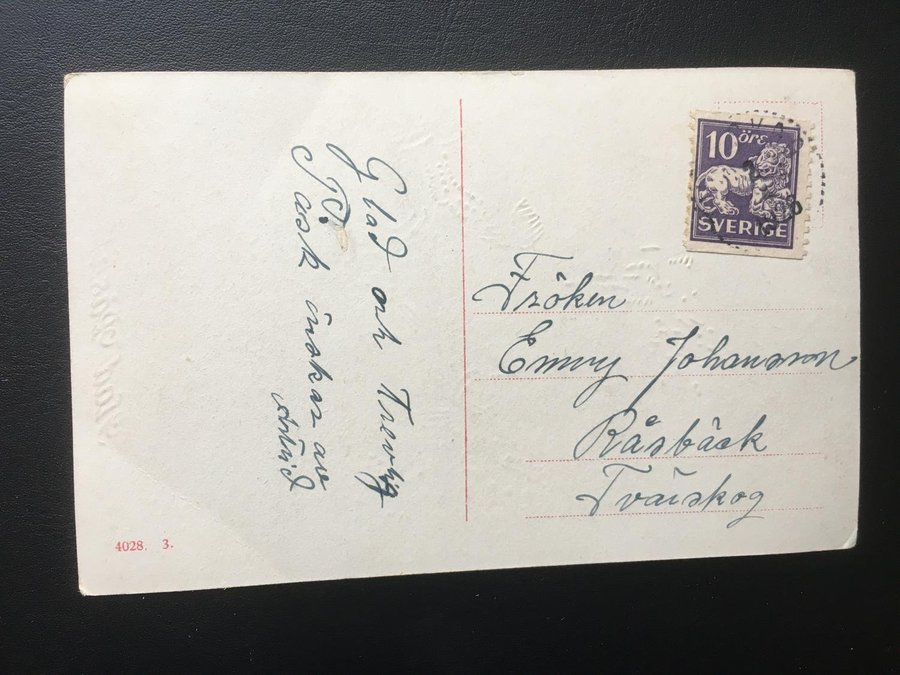 Glad och Trevlig
Påsk önskas av
Astrid
10 öre
SVERIGE
Fröken
Emmy Johansson
Råsbäck
Tvärskog
4028. 3.